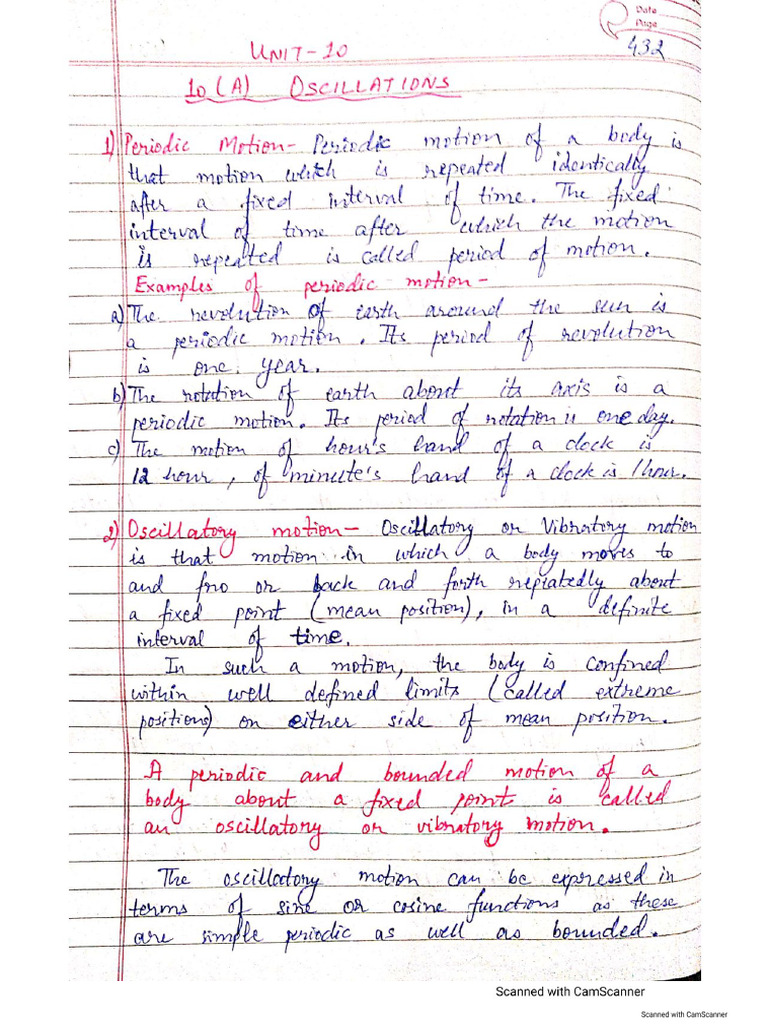 Date
Page
432
UNIT-10
10(A) OSCILLATIONS
1) Periodic Motion- Periodic motion of a body is
that motion which is repeated identically
after a fixed interval of time. The fixed
interval of time after which the motion
is repeated is called period of motion.
Examples of periodic motion-
a) The revolution of earth around the sun is
a periodic motion. Its period of revolution
is one year.
b) The rotation of earth about its axis is a
periodic motion. Its period of rotation is one day.
c) The motion of hour's hand of a clock is
12 hour, of minute's hand of a clock is 1 hour.
2) Oscillatory motion- Oscillatory or Vibratory motion
is that motion in which a body moves to
and fro or back and forth repeatedly about
a fixed point (mean position), in a definite
interval of time.
In such a motion, the body is confined
within well defined limits (called extreme
positions) on either side of mean position.
A periodic and bounded motion of a
body about a fixed point is called
an oscillatory or vibratory motion.
The oscillatory motion can be expressed in
terms of sine or cosine functions as these
are simple periodic as well as bounded.
Scanned with CamScanner
Scanned with CamScanner